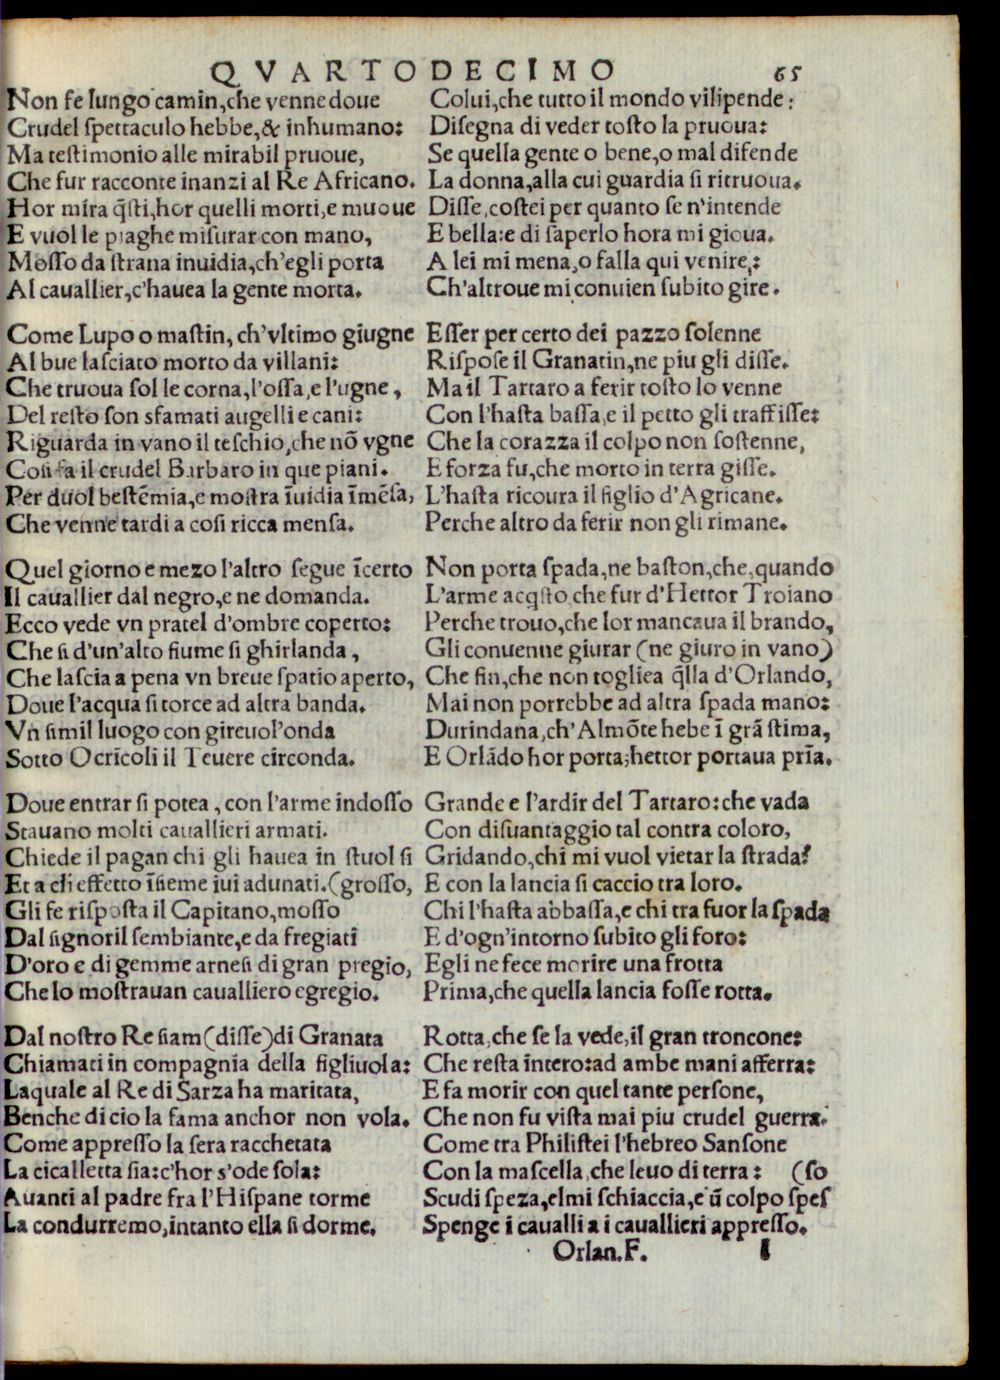 QVARTODECIMO 65
Non fe lungo camin,che venne doue
Crudel spettaculo hebbe,& inhumano:
Ma testimonio alle mirabil pruoue,
Che fur racconte inanzi al Re Africano.
Hor mira q̃sti,hor quelli morti,e muoue
E vuol le piaghe misurar con mano,
Mosso da strana inuidia,ch'egli porta
Al cauallier,c'hauea la gente morta.
Come Lupo o mastin, ch'vltimo giugne
Al bue lasciato morto da villani:
Che truoua sol le corna,l'ossa,e l'ugne,
Del resto son sfamati augelli e cani:
Riguarda in vano il teschio,che nō vgne
Cosi fa il crudel Barbaro in que piani.
Per duol bestēmia,e mostra īuidia īmēsa,
Che venne tardi a cosi ricca mensa.
Quel giorno e mezo l'altro segue īcerto
Il cauallier dal negro,e ne domanda.
Ecco vede vn pratel d'ombre coperto:
Che si d'un'alto fiume si ghirlanda,
Che lascia a pena vn breue spatio aperto,
Doue l'acqua si torce ad altra banda.
Vn simil luogo con gireuol'onda
Sotto Ocricoli il Teuere circonda.
Doue entrar si potea, con l'arme indosso
Stauano molti cauallieri armati.
Chiede il pagan chi gli hauea in stuol si
Et a che effetto īsieme iui adunati.(grosso,
Gli fe risposta il Capitano,mosso
Dal signoril sembiante,e da fregiati
D'oro e di gemme arnesi di gran pregio,
Che lo mostrauan caualliero egregio.
Dal nostro Re siam(disse)di Granata
Chiamati in compagnia della figliuola:
Laquale al Re di Sarza ha maritata,
Benche di cio la fama anchor non vola.
Come appresso la sera racchetata
La cicalletta sia:c'hor s'ode sola:
Auanti al padre fra l'Hispane torme
La condurremo,intanto ella si dorme.
Colui,che tutto il mondo vilipende:
Disegna di veder tosto la pruoua:
Se quella gente o bene,o mal difende
La donna,alla cui guardia si ritruoua.
Disse,costei per quanto se n'intende
E bella:e di saperlo hora mi gioua.
A lei mi mena,o falla qui venire,:
Ch'altroue mi conuien subito gire.
Esser per certo dei pazzo solenne
Rispose il Granatin,ne piu gli disse.
Ma il Tartaro a ferir tosto lo venne
Con l'hasta bassa,e il petto gli traffisse:
Che la corazza il colpo non sostenne,
E forza fu,che morto in terra gisse.
L'hasta ricoura il figlio d'Agricane.
Perche altro da ferir non gli rimane.
Non porta spada,ne baston,che,quando
L'arme acq̃sto,che fur d'Hettor Troiano
Perche trouo,che lor mancaua il brando,
Gli conuenne giurar (ne giuro in vano)
Che fin,che non togliea q̃lla d'Orlando,
Mai non porrebbe ad altra spada mano:
Durindana,ch'Almōte hebe ī grā stima,
E Orlādo hor porta;hettor portaua prīa.
Grande e l'ardir del Tartaro:che vada
Con disuantaggio tal contra coloro,
Gridando,chi mi vuol vietar la strada?
E con la lancia si caccio tra loro.
Chi l'hasta abbassa,e chi tra fuor la spada
E d'ogn'intorno subito gli foro:
Egli ne fece morire una frotta
Prima,che quella lancia fosse rotta.
Rotta,che se la vede,il gran troncone:
Che resta intero:ad ambe mani afferra:
E fa morir con quel tante persone,
Che non fu vista mai piu crudel guerra.
Come tra Philistei l'hebreo Sansone
Con la mascella,che leuo di terra: (so
Scudi speza,elmi schiaccia,e ū colpo spes
Spenge i caualli a i cauallieri appresso.
Orlan.F. I